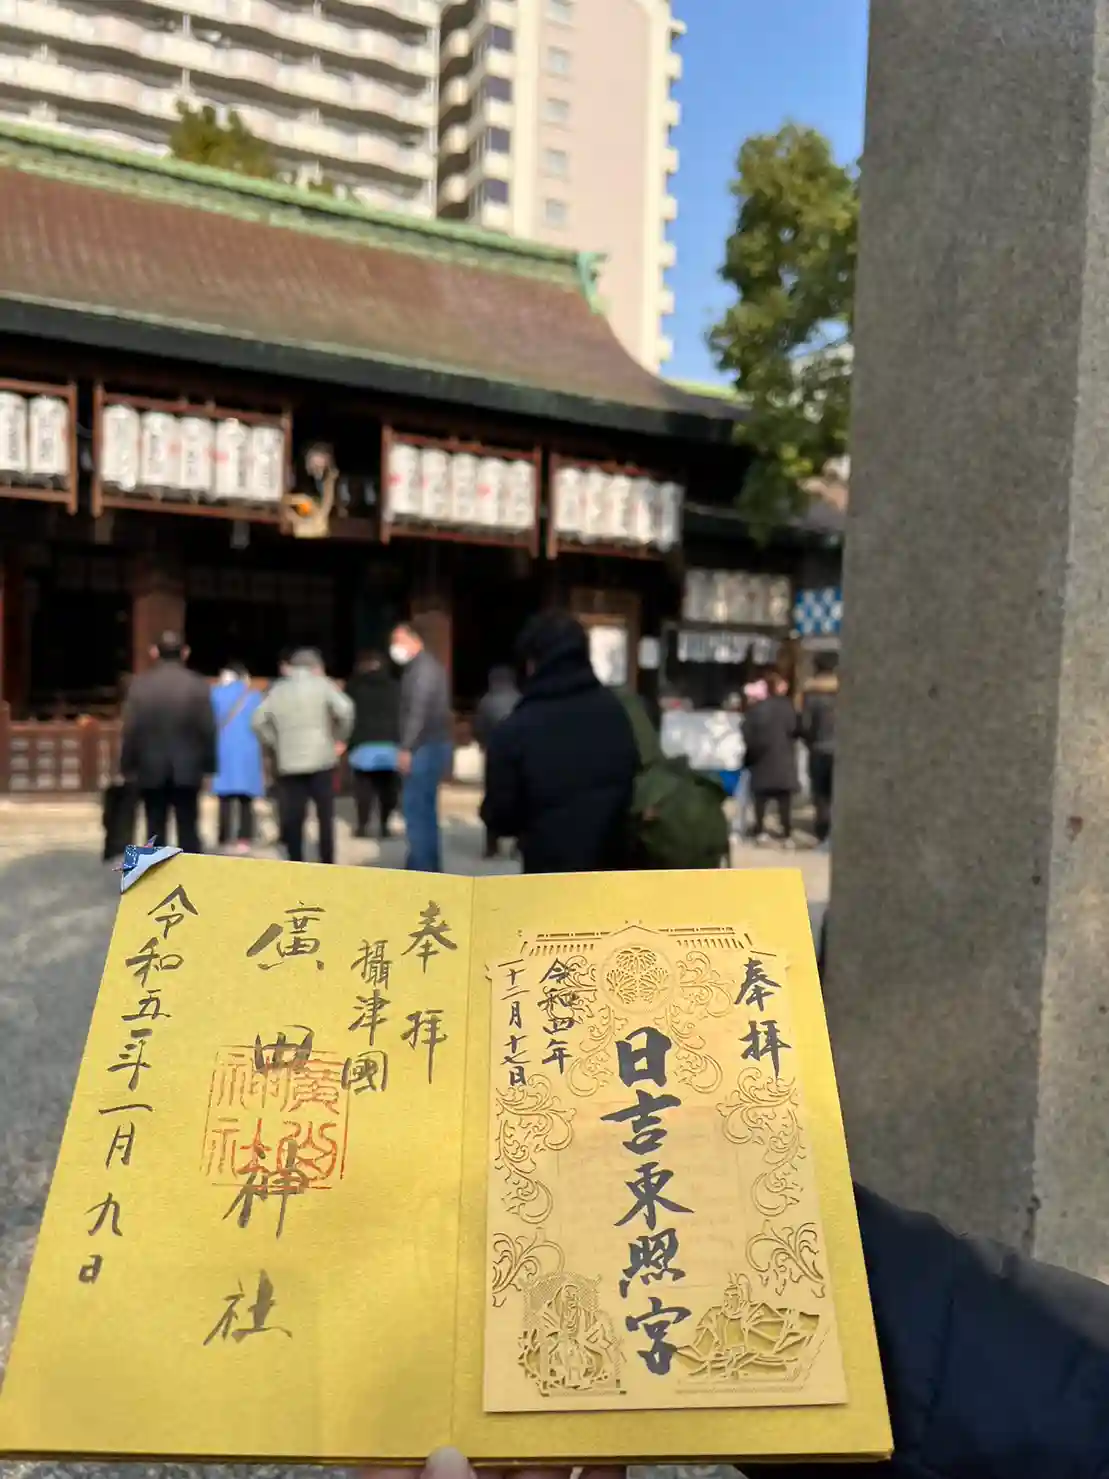 奉拝
日吉東照宮
令和四年
十二月十七日
奉拝
攝津國
廣田神社
廣田神社
令和五年一月九日